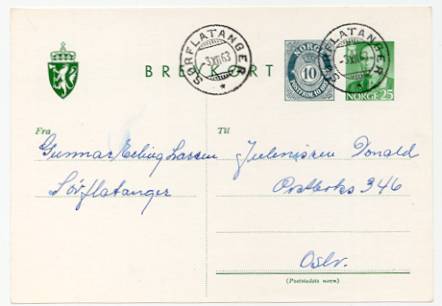 SØRFLATANGER
-3.XII.63
*
BREVKORT
NORGE
10
POSTFRIM. 10 ØRE
SØRFLATANGER
-3.XII.63
*
NORGE 25
Fra
Gunnar Erling Larsen
Sørflatanger
Til
Julenissen Donald
Postboks 346
Oslo.
(Poststedets navn)